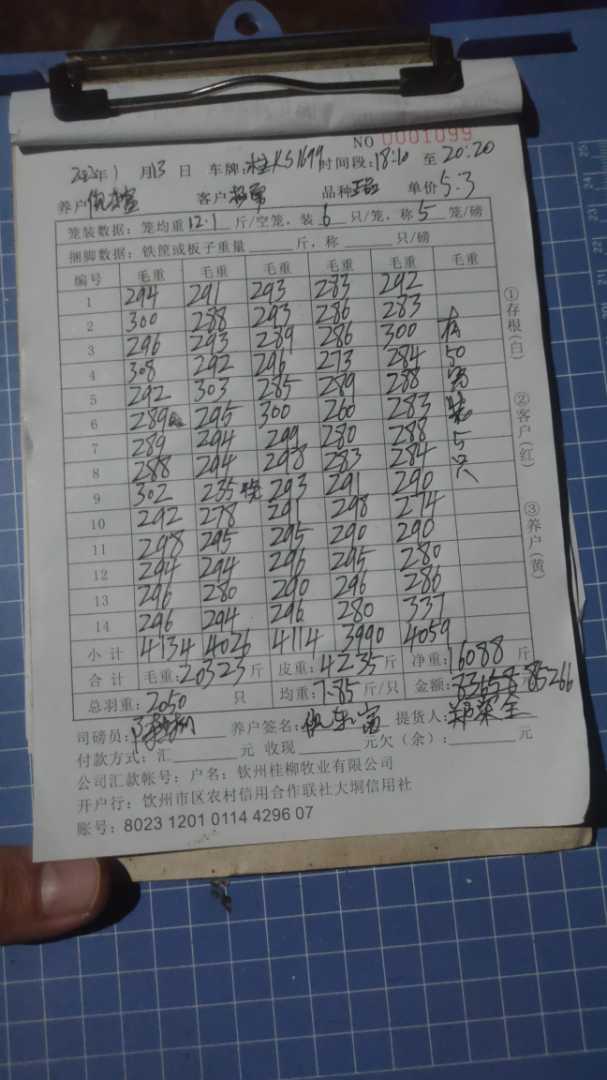 NO 0001099
年1月13日 车牌:桂KS1699 时间段:18:10 至 20:20
养户 客户 品种正品 单价5.3
笼装数据:笼均重12.1斤/空笼,装6只/笼,称5笼/磅
捆脚数据:铁筐或板子重量 斤,称 只/磅
编号 毛重 毛重 毛重 毛重 毛重 毛重
1 294 291 293 283 292
2 300 288 293 286 283
3 296 293 289 286 300 有
4 308 292 296 273 284 50
5 292 303 285 289 288 笼
6 289 295 300 260 283 装
7 289 294 299 280 288 5
8 288 294 298 283 284 只
9 302 235 293 291 290
10 292 278 291 298 274
11 298 295 295 290 290
12 294 294 296 295 280
13 296 280 290 296 286
14 296 294 296 280 337
小计 4134 4026 4114 3990 4059
合计 毛重:20323斤 皮重:4235斤 净重:16088斤
总羽重:2050只 均重:7.85斤/只 金额: 85266元
司磅员: 养户签名: 提货人:
付款方式:汇 元 收现 元欠(余): 元
公司汇款帐号:户名:钦州桂柳牧业有限公司
开户行:钦州市区农村信用合作联社大垌信用社
账号:8023 1201 0114 4296 07
①存根(白)
②客户(红)
③养户(黄)
25